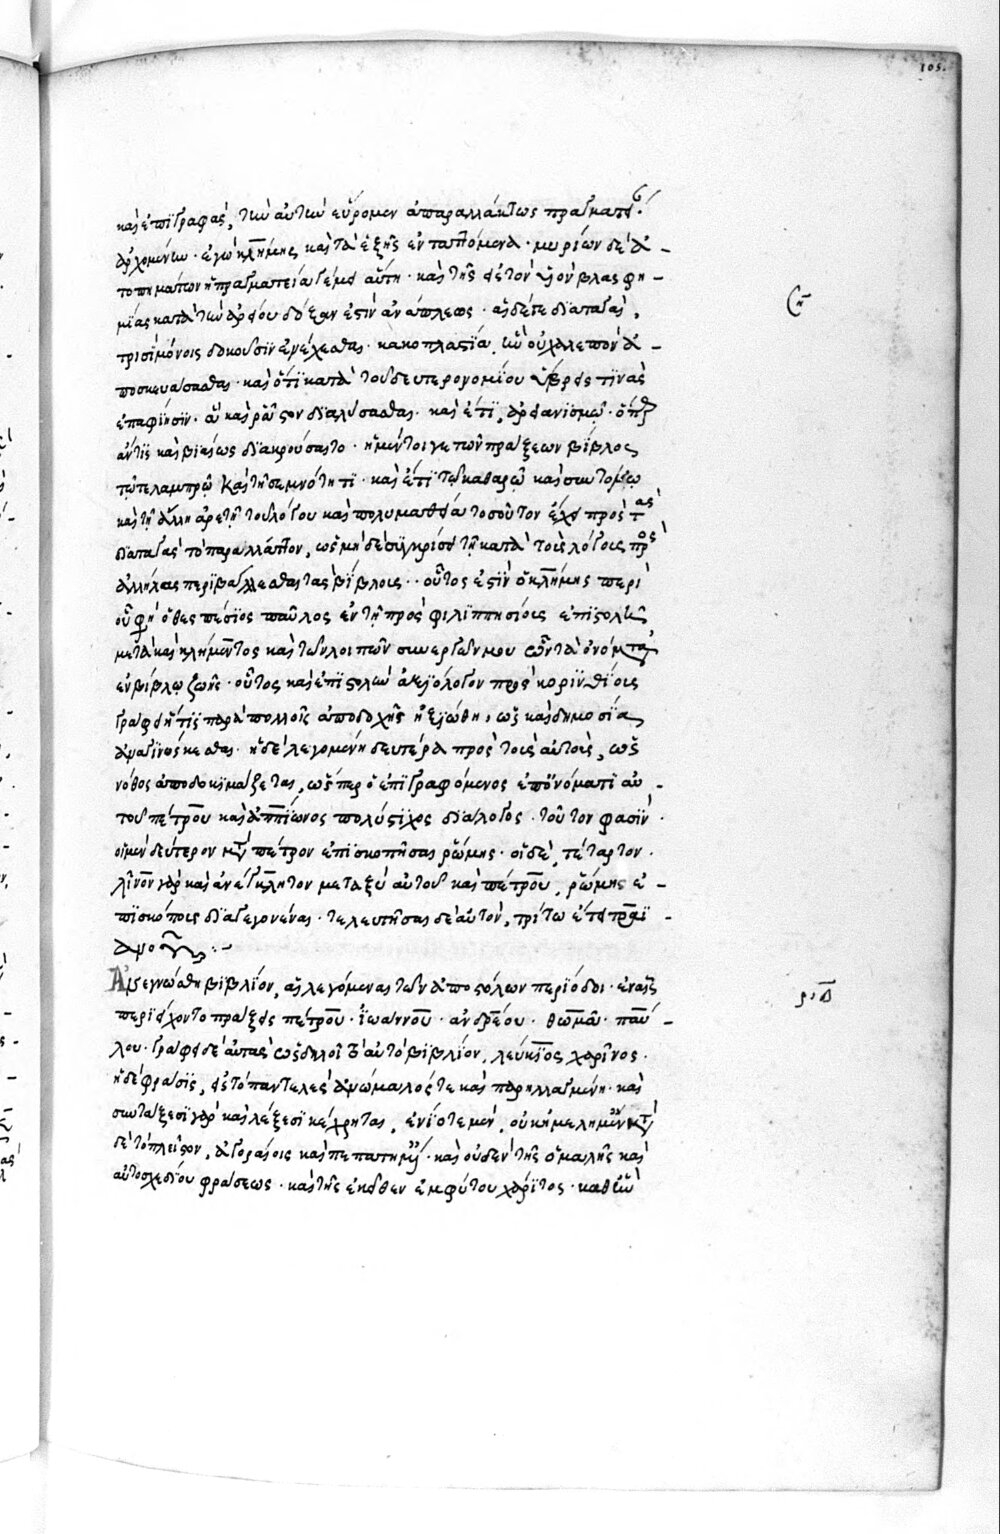 105.
καὶ ἐπιγραφὰς, τὴν αὐτὴν εὕρομεν ἀπαραλλάκτως πραγματεί
ἀρχομένην· ἐγὼ κλήμης καὶ τὰ ἑξῆς ἐνταττόμενα· μυρίων δὲ ἀ-
τοπημάτων ἡ πραγματεία γέμει αὕτη· καὶ τῆς εἰς τὸν υἱὸν βλασφη-
μίας κατὰ τὴν ἀρείου δόξαν ἐστὶν ἀνάπλεως· αἱ δέ γε διαταγαὶ,
τρισὶ μόνοις δοκοῦσιν ἐνέχεσθαι· κακοπλαστία, ἣν οὐ χαλεπὸν ἀ-
ποσκευάσασθαι· καὶ ὅτι κατὰ τοῦ δευτερονομίου ὕβρεις τινὰς
ἐπαφίησιν· ἃ καὶ ῥᾷστον διαλύσασθαι· καὶ ἔτι, ἀρειανισμῷ· ὅπερ
ἄν τις καὶ βιαίως διακρούσαιτο· ἡ μέντοι γε τῶν πράξεων βίβλος
τῷ τε λαμπρῷ καὶ τῇ σεμνότητι· καὶ ἔτι τῷ καθαρῷ καὶ συντόνῳ
καὶ τῇ ἄλλῃ ἀρετῇ τοῦ λόγου καὶ πολυμαθείᾳ τοσοῦτον ἔχει πρὸς τὰς
διαταγὰς τὸ παραλλάττον, ὡς μηδὲ συγκρίσει τῇ κατὰ τοὺς λόγους πρὸς
ἀλλήλας περιβαλλέσθαι τὰς βίβλους·· οὗτος ἐστὶν ὁ κλήμης περὶ
οὗ φη ὁ θεσπέσιος παῦλος ἐν τῇ πρὸς φιλιππησίους ἐπιστολῇ
μετὰ καὶ κλήμεντος καὶ τῶν λοιπῶν συνεργῶν μου ὧν τὰ ὀνόματα
ἐν βίβλῳ ζωῆς· οὗτος καὶ ἐπιστολὴν ἀξιόλογον πρὸς κορινθίους
γράφει ἥτις παρὰ πολλοῖς ἀποδοχῆς ἠξιώθη, ὡς καὶ δημοσίᾳ
ἀναγινώσκεσθαι· ἡ δὲ λεγομένη δευτέρα πρὸς τοὺς αὐτοὺς, ὡς
νόθος ἀποδοκιμάζεται, ὥσπερ ὁ ἐπιγραφόμενος ἐπ' ὀνόματι αὐ-
τοῦ πέτρου καὶ ἀππίωνος πολύστιχος διάλογος· τοῦτον φασὶν·
οἱ μὲν δεύτερον μετὰ πέτρον ἐπισκοπῆσαι ῥώμης· οἱ δὲ, τέταρτον·
λῖνον γὰρ καὶ ἀνέγκλητον μεταξὺ αὐτοῦ καὶ πέτρου, ῥώμης ἐ-
πισκόπους διαγεγονέναι· τελευτῆσαι δὲ αὐτὸν, τρίτω ἔτει τραϊ-
ανοῦ :-
Ἀνεγνώσθη βιβλίον, αἱ λεγόμεναι τῶν ἀποστόλων περίοδοι· ἐν αἷς
περιείχοντο πράξεις πέτρου· ἰωάννου· ἀνδρέου· θωμᾶ· παύ-
λου· γράφει δὲ αὐτὰς ὡς δηλοῖ τὸ αὐτὸ βιβλίον, λεύκιος χαρῖνος·
ἡ δὲ φράσις, εἰς τὸ παντελὲς ἀνώμαλός τε καὶ παρηλλαγμένη· καὶ
συντάξεσι γὰρ καὶ λέξεσι κέχρηται, ἐνίοτε μὲν, οὐκ ἠμελημέναις κατὰ
δὲ τὸ πλεῖστον, ἀγοραίοις καὶ πεπατημέναις· καὶ οὐδὲν τῆς ὁμαλῆς καὶ
αὐτοσχεδίου φράσεως· καὶ τῆς ἐκεῖθεν ἐμφύτου χάριτος· καθ' ἣν
ριδ